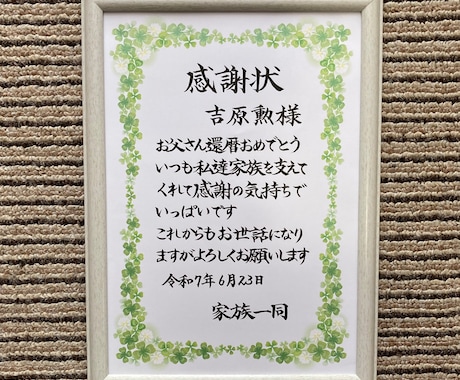 感謝状
吉原勲様
お父さん還暦おめでとう
いつも私達家族を支えて
くれて感謝の気持ちで
いっぱいです
これからもお世話になり
ますがよろしくお願いします
令和7年6月23日
家族一同